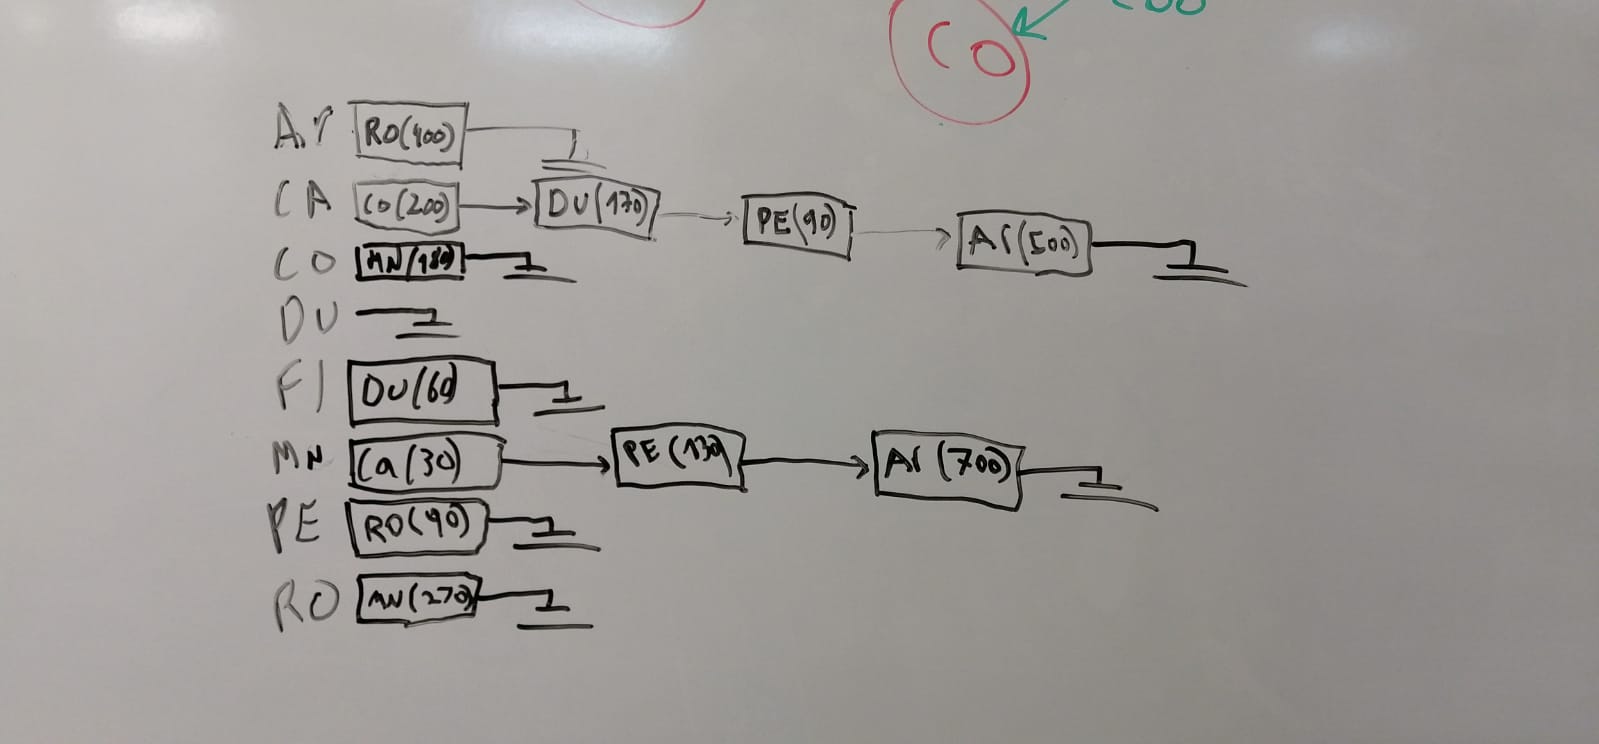 CO
Ar RO(400)
CA CO(200) DU(170) PE(90) Ar(500)
CO MN(180)
DU
FI DU(60)
MN Ca(30) PE(130) Ar(700)
PE RO(90)
RO MN(270)